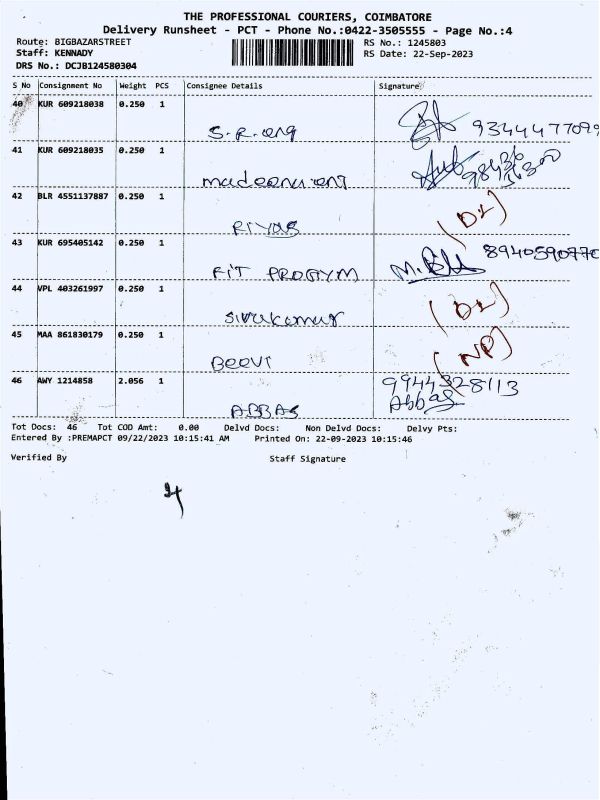 THE PROFESSIONAL COURIERS, COIMBATORE
Delivery Runsheet - PCT - Phone No.:0422-3505555 - Page No.:4
Route: BIGBAZARSTREET RS No.: 1245803
Staff: KENNADY RS Date: 22-Sep-2023
DRS No.: DCJB124580304
S No Consignment No Weight PCS Consignee Details Signature
40 KUR 609218038 0.250 1
S.R. 9344477099
41 KUR 609218035 0.250 1
42 BLR 4551137887 0.250 1
RIYAS (D2)
43 KUR 695405142 0.250 1
FIT PROGYM 8940590770
44 VPL 403261997 0.250 1
sivakumar (D2)
45 MAA 861830179 0.250 1
BEEVI (NP)
46 AWY 1214858 2.056 1
9944328113
ABBAS Abbas
Tot Docs: 46 Tot COD Amt: 0.00 Delvd Docs: Non Delvd Docs: Delvy Pts:
Entered By :PREMAPCT 09/22/2023 10:15:41 AM Printed On: 22-09-2023 10:15:46
Verified By Staff Signature